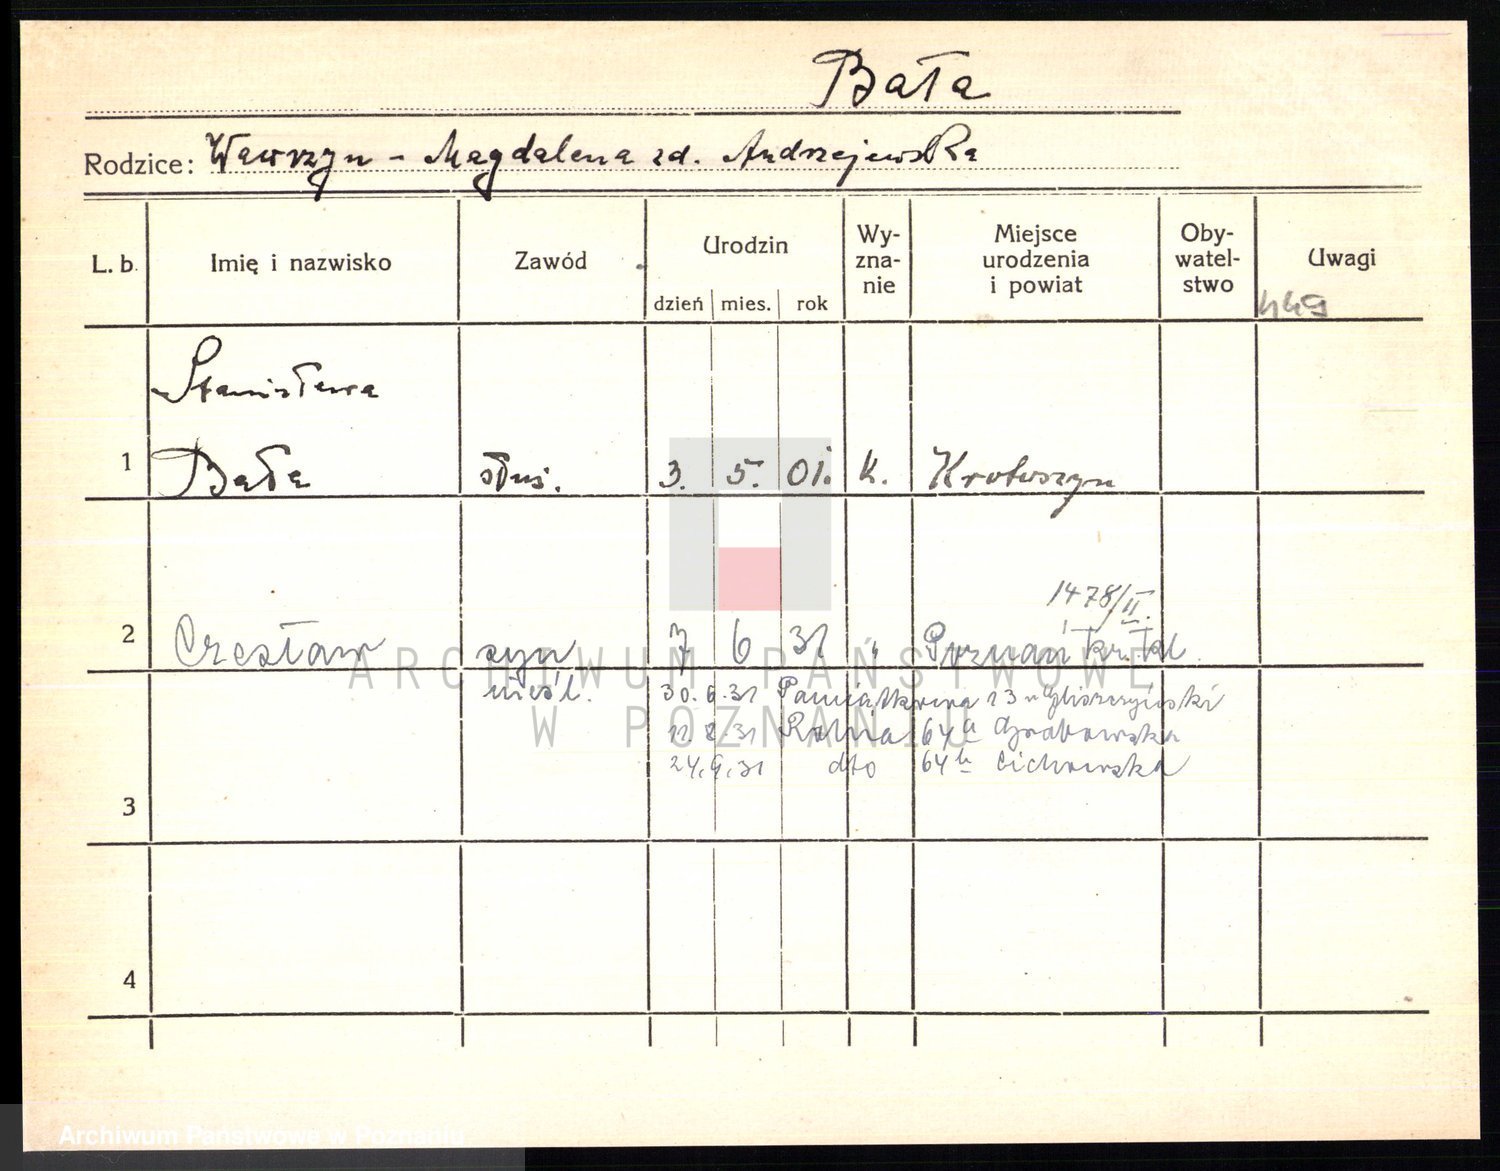 Bała
Rodzice: Wawrzyn - Magdalena zd. Andrzejewska
L. b. Imię i nazwisko Zawód Urodzin dzień mies. rok Wy-zna-nie Miejsce urodzenia i powiat Oby-watel-stwo Uwagi
449
Stanisława
1 Bała służ. 3. 5. 01. k. Krotoszyn
1478/II.
2 Czesław syn 7 6 31 " Poznań
nieśl. 30.6.31 Pamiątkowa 23
12.8.31 Rolna 64a Grabowska
24.9.31 dto 64b Cichowska
3
4
ARCHIWUM PAŃSTWOWE
W POZNANIU
Archiwum Państwowe w Poznaniu